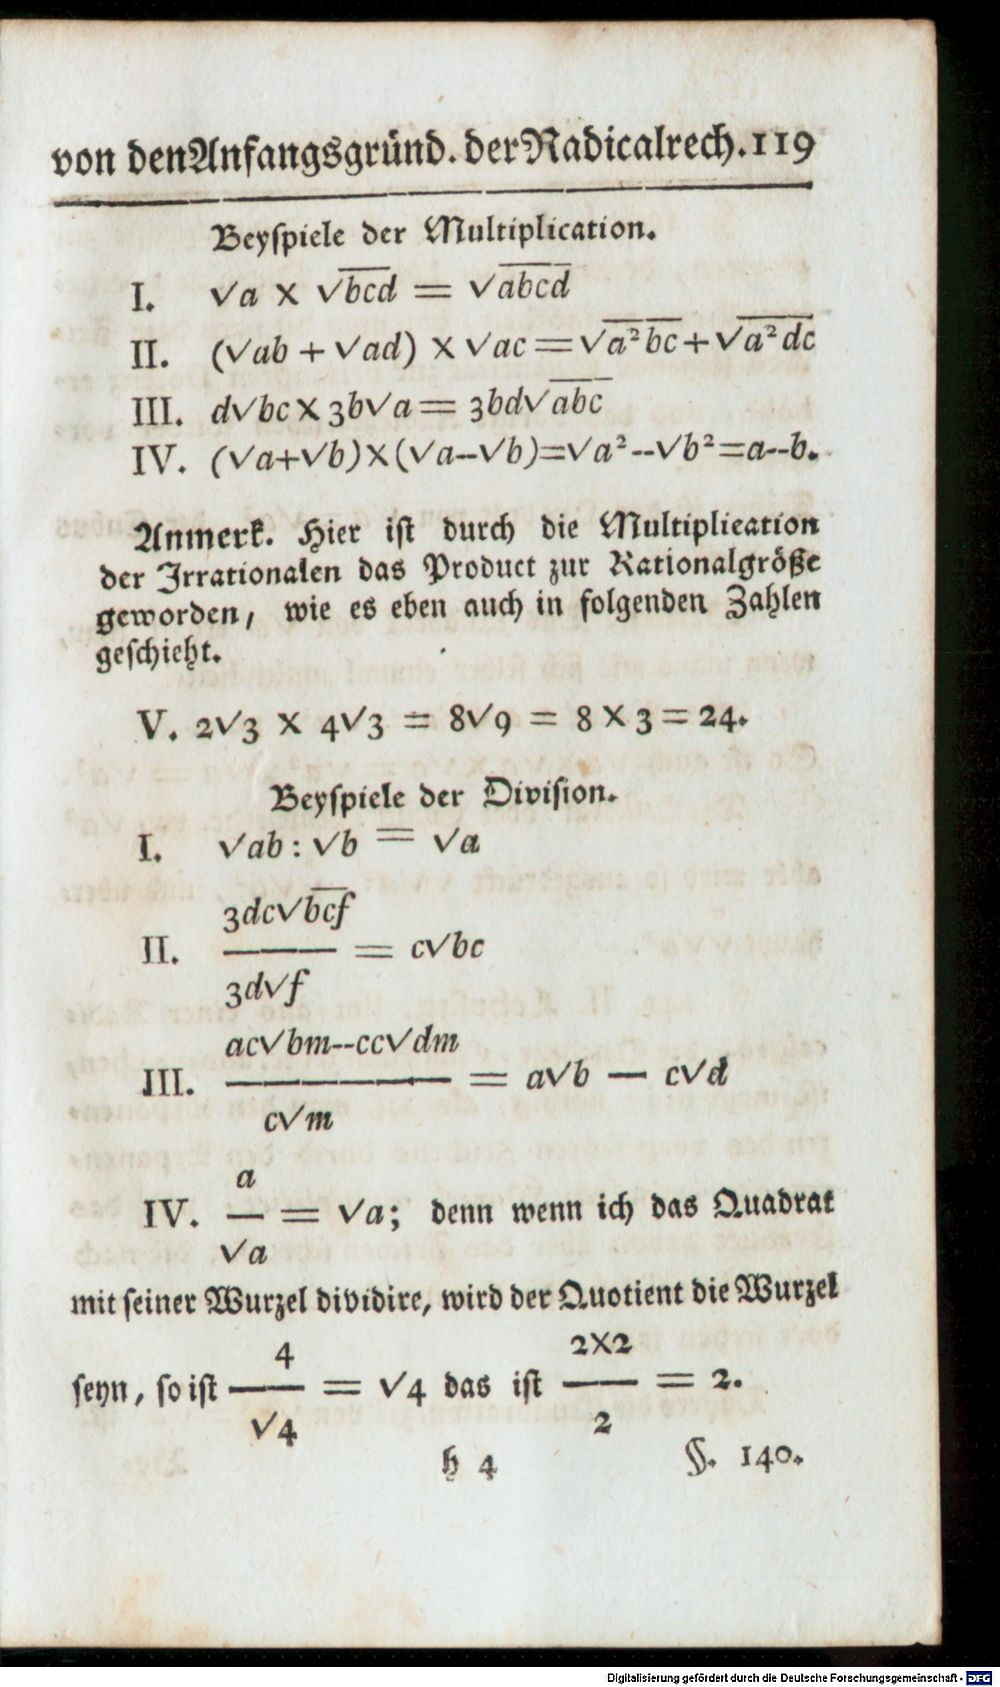 von den Anfangsgründ. der Radicalrech. 119
Beyſpiele der Multiplication.
I. √a × √b̅c̅d̅ = √a̅b̅c̅d̅
II. (√ab + √ad) × √ac = √a̅²̅b̅c̅ + √a̅²̅d̅c̅
III. d√bc × 3b√a = 3bd√a̅b̅c̅
IV. (√a+√b)×(√a--√b)=√a²--√b²=a--b.
Anmerk. Hier iſt durch die Multiplication
der Irrationalen das Product zur Rationalgröße
geworden, wie es eben auch in folgenden Zahlen
geſchieht.
V. 2√3 × 4√3 = 8√9 = 8 × 3 = 24.
Beyſpiele der Diviſion.
I. √ab : √b = √a
3dc√b̅c̅f̅
II. ——— = c√bc
3d√f
ac√bm--cc√dm
III. —————— = a√b — c√d
c√m
a
IV. — = √a; denn wenn ich das Quadrat
√a
mit ſeiner Wurzel dividire, wird der Quotient die Wurzel
4 2×2
ſeyn, ſo iſt —— = √4 das iſt —— = 2.
√4 2
H 4 §. 140.
Digitalisierung gefördert durch die Deutsche Forschungsgemeinschaft - DFG